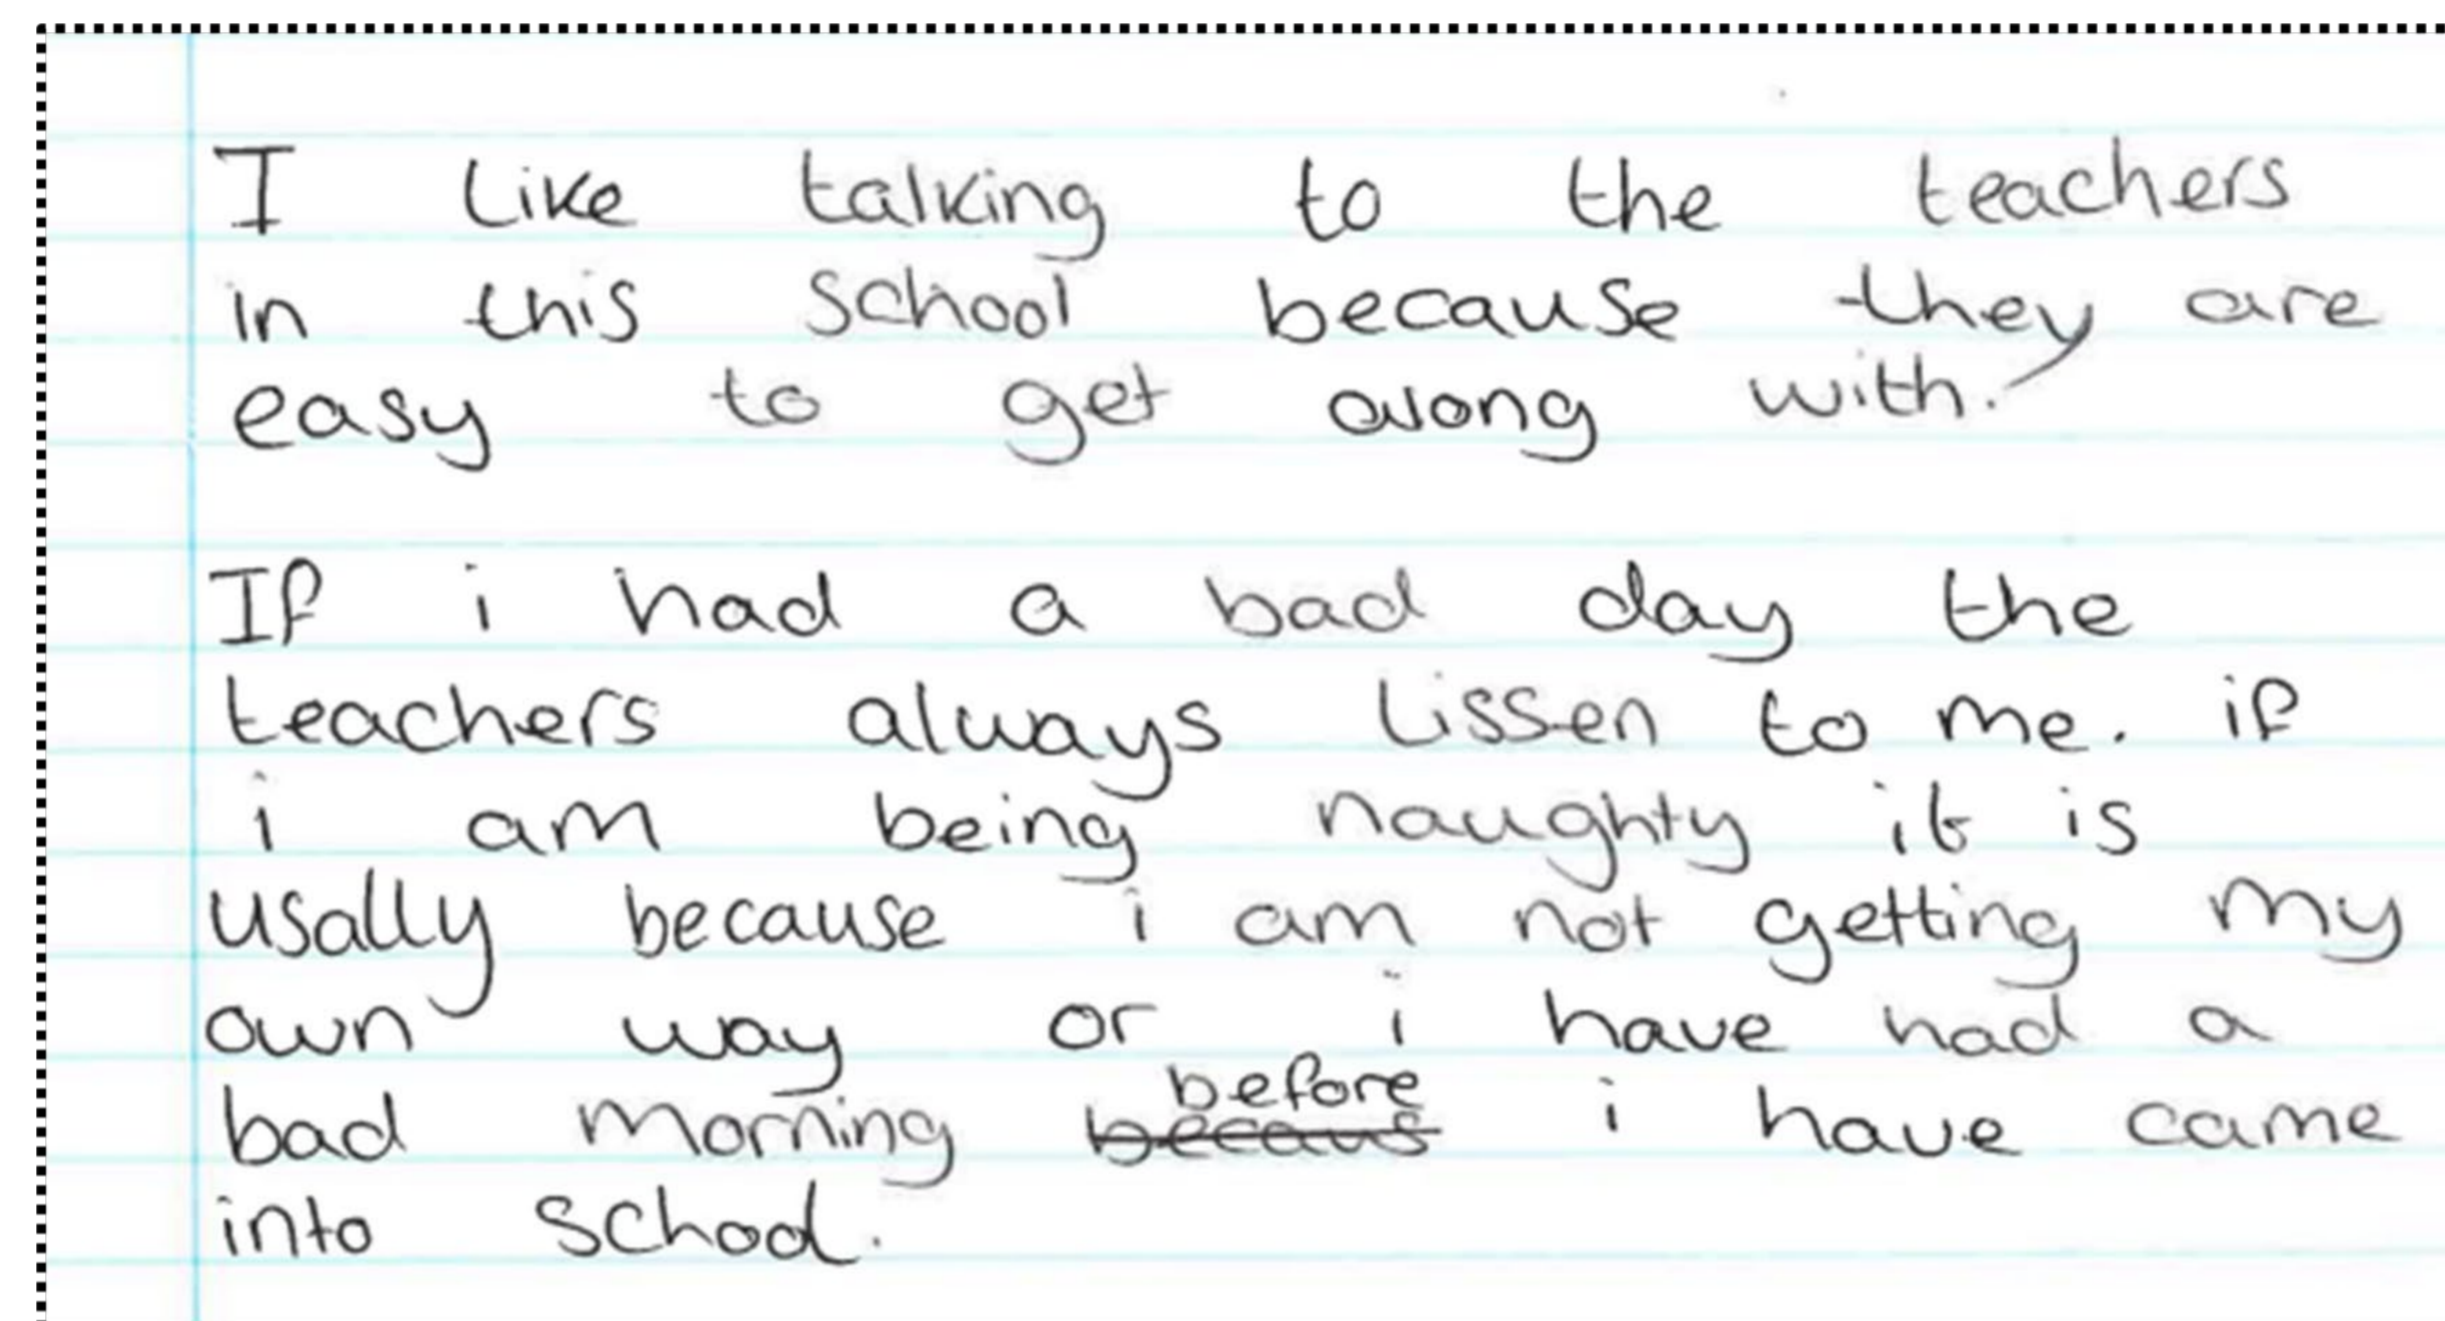 I like talking to the teachers
in this school because they are
easy to get along with.
If i had a bad day the
teachers always lissen to me. if
i am being naughty it is
usally because i am not getting my
own way or i have had a
before
bad morning becaus i have came
into school.